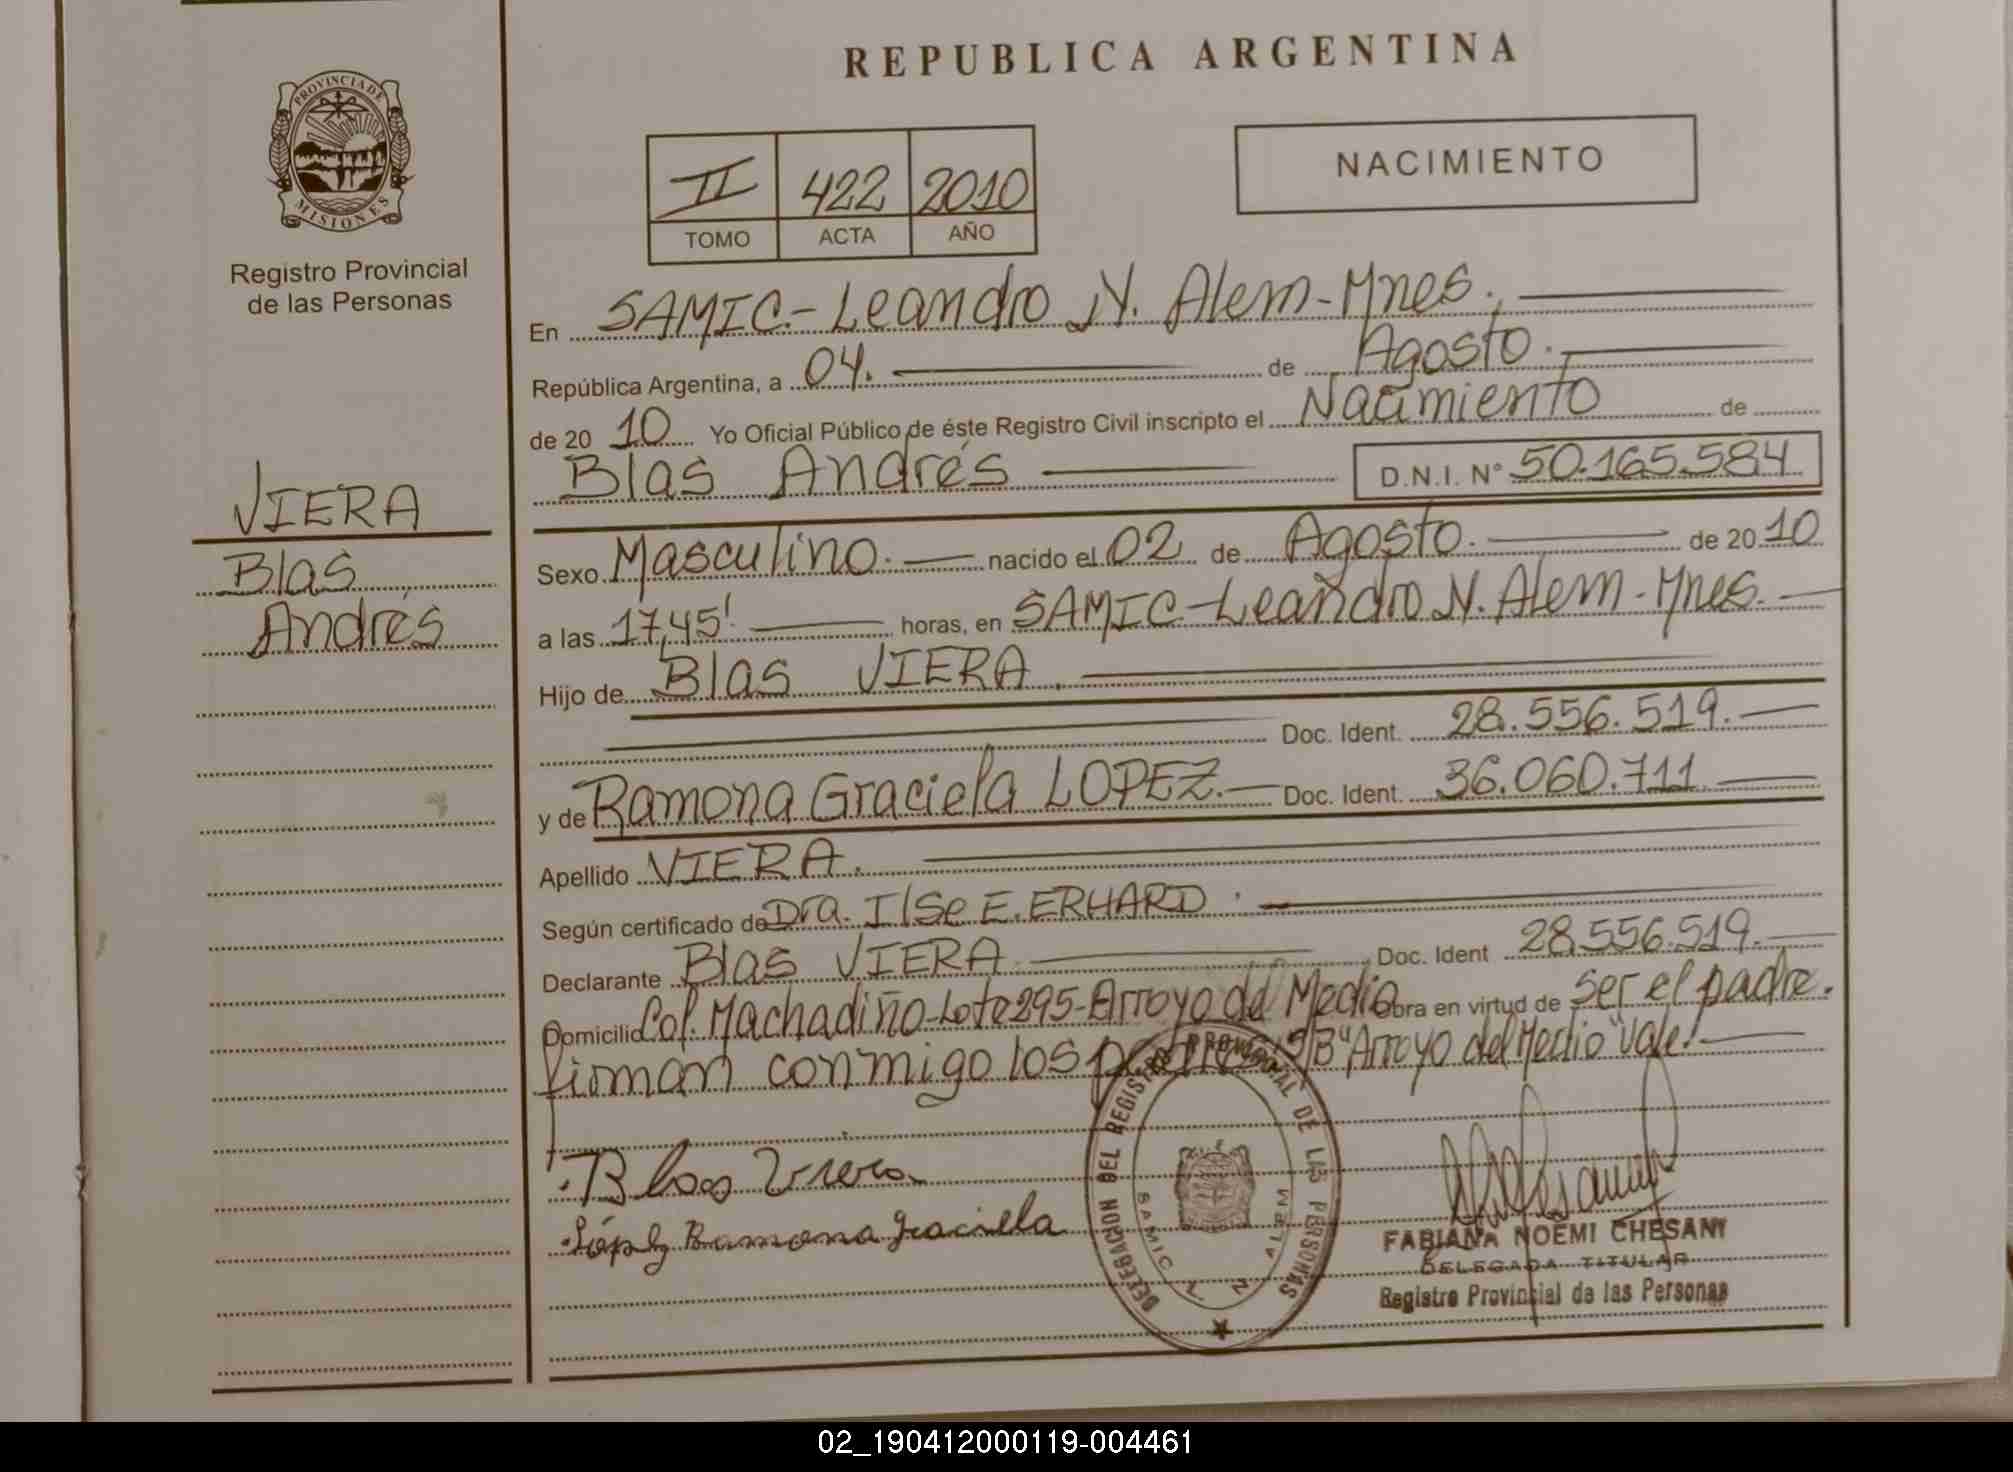 REPUBLICA ARGENTINA
PROVINCIA DE
MISIONES
Registro Provincial
de las Personas
II 422 2010
TOMO ACTA AÑO
NACIMIENTO
VIERA
Blas
Andrés
En SAMIC.- Leandro N. Alem - Mnes.
República Argentina, a 04. de Agosto.
de 20 10 Yo Oficial Público de éste Registro Civil inscripto el Nacimiento de
Blas Andrés D.N.I. Nº 50.165.584
Sexo Masculino. nacido el 02 de Agosto. de 20 10
a las 17,45' horas, en SAMIC - Leandro N. Alem - Mnes.
Hijo de Blas VIERA.
Doc. Ident. 28.556.519.
y de Ramona Graciela LOPEZ. Doc. Ident. 36.060.711
Apellido VIERA.
Según certificado de Dra. Ilse E. ERHARD.
Declarante Blas VIERA Doc. Ident 28.556.519.
Domicilio Col. Machadiño - Lote 295 - Arroyo del Medio Obra en virtud de ser el padre.
firman conmigo los S/B "Arroyo del Medio" Vale!
Blas Viera
López Ramona Graciela
DELEGACION DEL REGISTRO PROVINCIAL DE LAS PERSONAS
SAMIC L. N. ALEM
FABIANA NOEMI CHESANI
DELEGADA TITULAR
Registro Provincial de las Personas
02_190412000119-004461